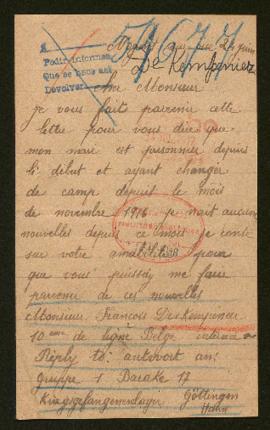 Podir informar
Que se hace asi
Devolver
De Kempeneer
cher Monsieur
je vous fait parvenir cette
lettre pour vous dire que
mon mari est prisonnier depuis
le debut et ayant changer
de camp depuis le mois
de novembre 1916 je n'ait aucune
nouvelles depuis ce mois je conte
sur votre amabilité pour
que vous puissiez me faire
parvenir de ces nouvelles
Monsieur Francois De Kempeneer
10 eme de ligne Belge interné a
Reply to: antwort an:
Gruppe 1 Barake 17
Kriegsgefangenenlager Göttingen
Hahn